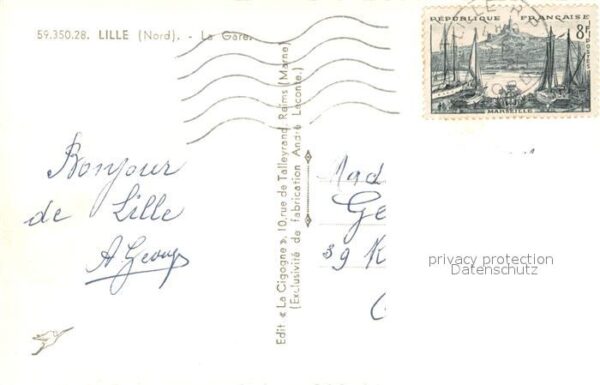 59.350.28. LILLE (Nord). - La Gare.
RÉPUBLIQUE FRANÇAISE
8F
MARSEILLE
Bonjour
de Lille
Edit « La Cigogne », 10, rue de Talleyrand, Reims (Marne)
(Exclusivité de fabrication André Leconte.)
Mad
Ge
39 
privacy protection
Datenschutz